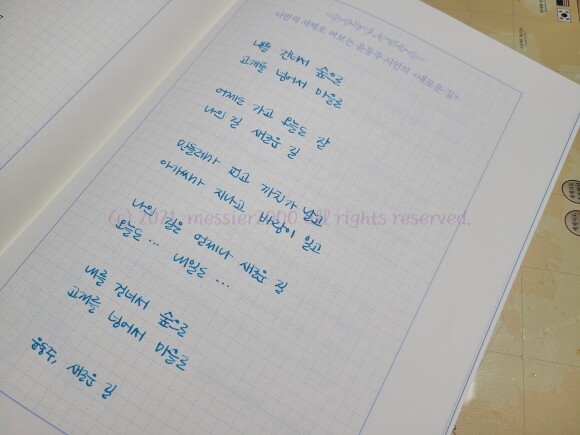 나만의 서체로 써보는 윤동주 시인의 <새로운 길>
내를 건너서 숲으로
고개를 넘어서 마을로
어제도 가고 오늘도 갈
나의 길 새로운 길
민들레가 피고 까치가 날고
아가씨가 지나고 바람이 일고
(c) 2021. messier1000 all rights reserved.
나의 길은 언제나 새로운 길
오늘도 ... 내일도 ...
내를 건너서 숲으로
고개를 넘어서 마을로
윤동주, 새로운 길